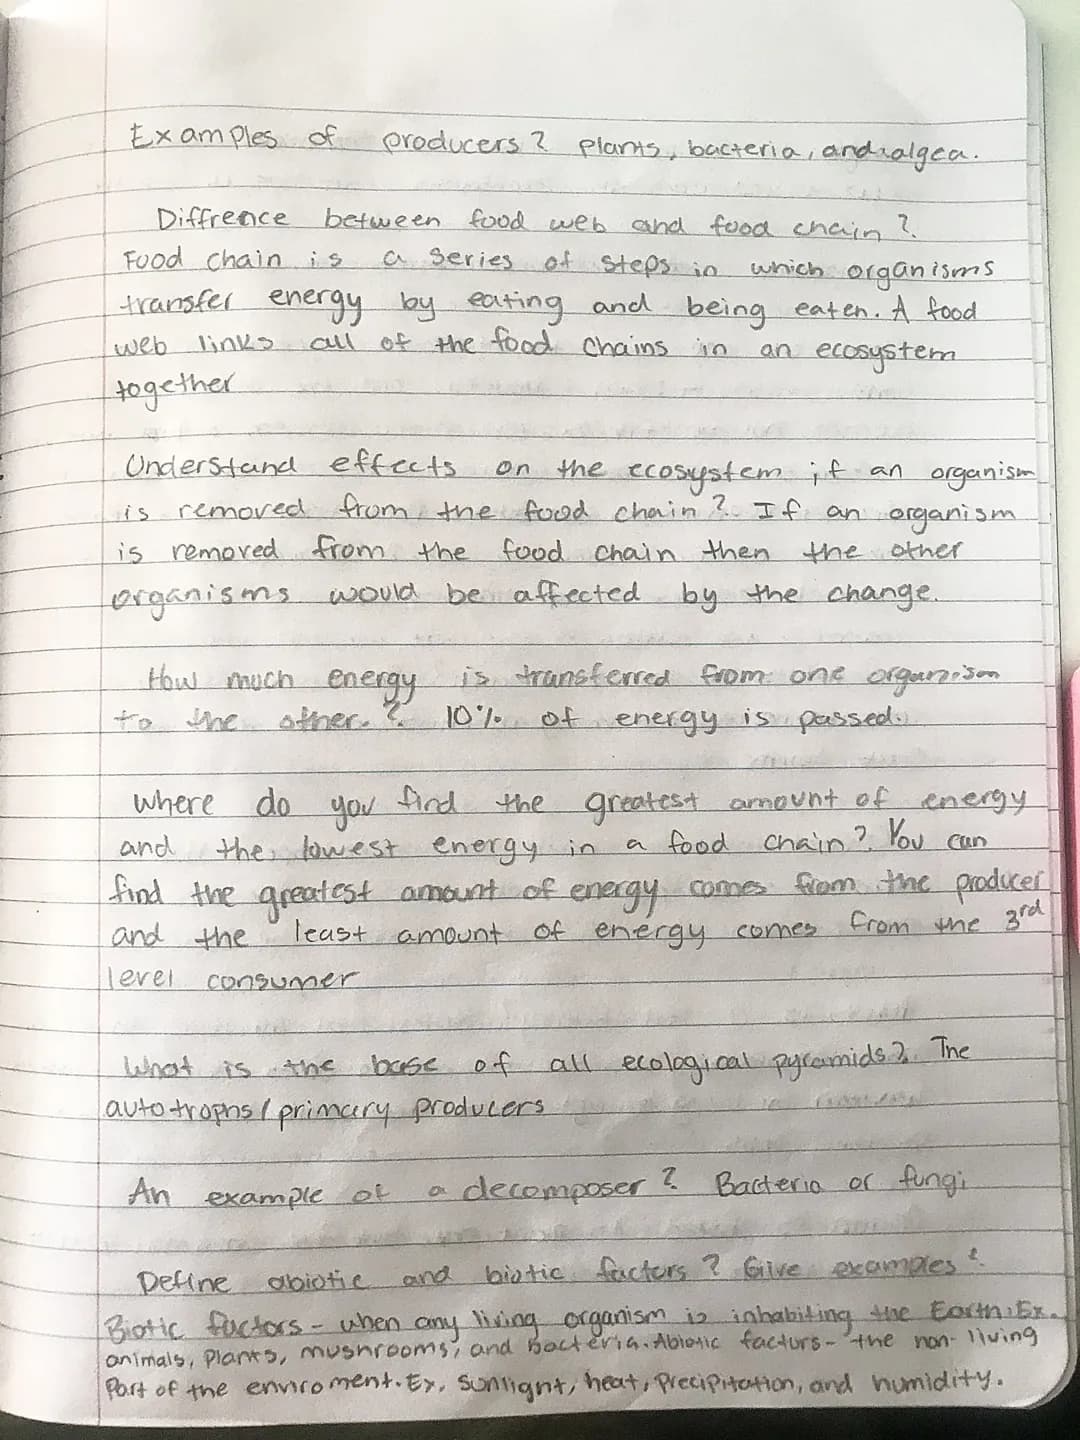 Examples of producers? plants, bacteria, and algea.
Diffrence between food web and food chain?
Food chain is a series of steps in which organisms
transfer energy by eating and being eaten. A food
web links all of the food chains in an ecosystem
together
Understand effects on the ecosystem if an organism
is removed from the food chain? If an organism
is removed from the food chain then the other
organisms would be affected by the change.
How much energy is transferred from one organism
to the other.? 10% of energy is passed.
where do you find the greatest amount of energy
and the lowest energy in a food chain? You can
find the greatest amount of energy comes from the producer
and the least amount of energy comes from the 3rd
level consumer
What is the base of all ecological pyramids? The
autotrophs/primary producers
An example of a decomposer? Bacteria or fungi
Define abiotic and biotic factors? Give examples?
Biotic factors - when any living organism is inhabiting the Earth. Ex.
animals, Plants, mushrooms, and bacteria. Abiotic factors - the non-living
Part of the enviroment. Ex, sunlight, heat, Precipitation, and humidity.